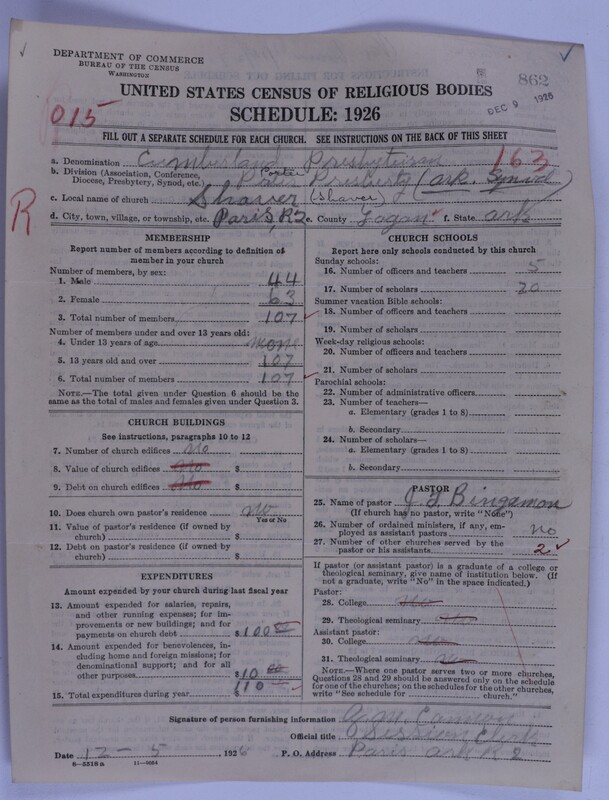 DEPARTMENT OF COMMERCE
BUREAU OF THE CENSUS
WASHINGTON
862
DEC 9 1926
UNITED STATES CENSUS OF RELIGIOUS BODIES
015
SCHEDULE: 1926
FILL OUT A SEPARATE SCHEDULE FOR EACH CHURCH. SEE INSTRUCTIONS ON THE BACK OF THIS SHEET
a. Denomination Cumberland Presbyterian 163
b. Division (Association, Conference, Diocese, Presbytery, Synod, etc.) Porter Presberty (ark. Synod
c. Local name of church Shaver (Shaver)
R
d. City, town, village, or township, etc. Paris, R2 e. County Logan f. State ark
MEMBERSHIP
Report number of members according to definition of member in your church
Number of members, by sex:
1. Male 44
2. Female 63
3. Total number of members 107
Number of members under and over 13 years old:
4. Under 13 years of age none
5. 13 years old and over 107
6. Total number of members 107
NOTE.—The total given under Question 6 should be the same as the total of males and females given under Question 3.
CHURCH BUILDINGS
See instructions, paragraphs 10 to 12
7. Number of church edifices No
8. Value of church edifices No $
9. Debt on church edifices No $
10. Does church own pastor's residence No
Yes or No
11. Value of pastor's residence (if owned by church) $
12. Debt on pastor's residence (if owned by church) $
EXPENDITURES
Amount expended by your church during last fiscal year
13. Amount expended for salaries, repairs, and other running expenses; for improvements or new buildings; and for payments on church debt $100 00
14. Amount expended for benevolences, including home and foreign missions; for denominational support; and for all other purposes $10 00
15. Total expenditures during year 110
CHURCH SCHOOLS
Report here only schools conducted by this church
Sunday schools:
16. Number of officers and teachers 5
17. Number of scholars 20
Summer vacation Bible schools:
18. Number of officers and teachers
19. Number of scholars
Week-day religious schools:
20. Number of officers and teachers
21. Number of scholars
Parochial schools:
22. Number of administrative officers
23. Number of teachers—
a. Elementary (grades 1 to 8)
b. Secondary
24. Number of scholars—
a. Elementary (grades 1 to 8)
b. Secondary
PASTOR
25. Name of pastor Bingamon
(If church has no pastor, write "None")
26. Number of ordained ministers, if any, employed as assistant pastors no
27. Number of other churches served by the pastor or his assistants 2
If pastor (or assistant pastor) is a graduate of a college or theological seminary, give name of institution below. (If not a graduate, write "No" in the space indicated.)
Pastor:
28. College No
29. Theological seminary No
Assistant pastor:
30. College No
31. Theological seminary No
NOTE.—Where one pastor serves two or more churches, Questions 28 and 29 should be answered only on the schedule for one of the churches; on the schedules for the other churches, write "See schedule for church."
Signature of person furnishing information
Official title Session Clerk
Date 12-5, 1926 P. O. Address Paris ark R 2
8-5318a 11-9024